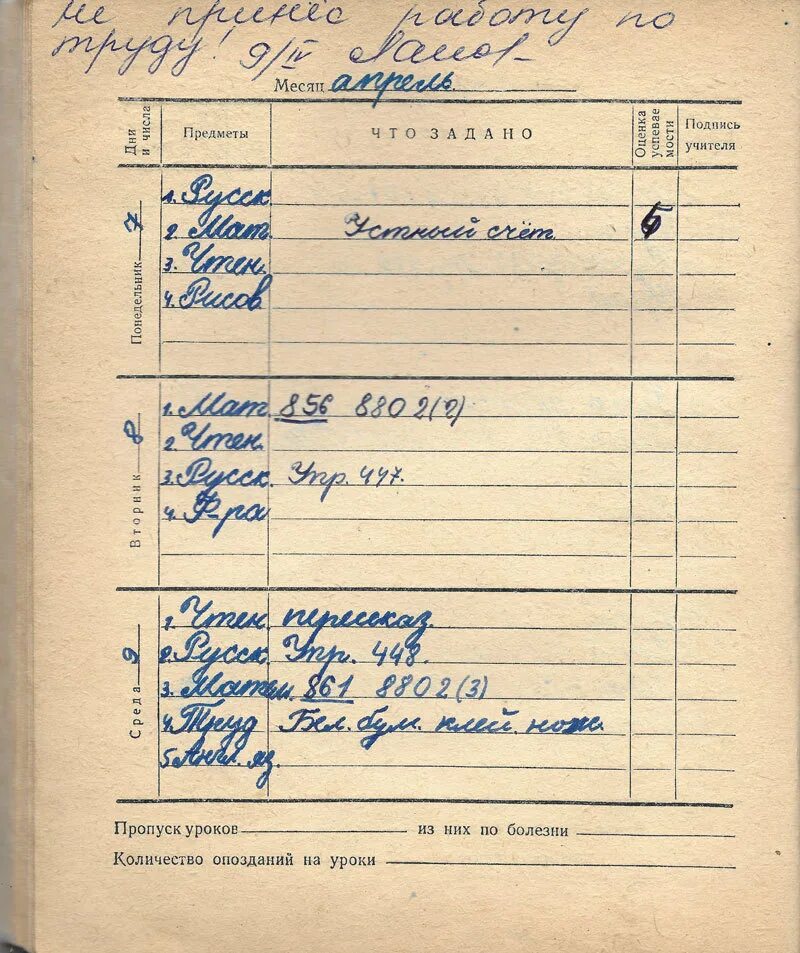 не принёс работу по
труду! 9/IV
Месяц апрель
Дни и числа Предметы ЧТО ЗАДАНО Оценка успевае мости Подпись учителя
Понедельник 7
1. Русск
2. Мат. Устный счёт 5
3. Чтен.
4. Рисов
Вторник 8
1. Мат. 856 880 2(2)
2. Чтен.
3. Русск. Упр. 447.
4. Ф-ра
Среда 9
1. Чтен. пересказ.
2. Русск. Упр. 448.
3. Матем. 861 880 2(3)
4. Труд Бел. бум. клей. нож.
5 Англ. яз.
Пропуск уроков из них по болезни
Количество опозданий на уроки